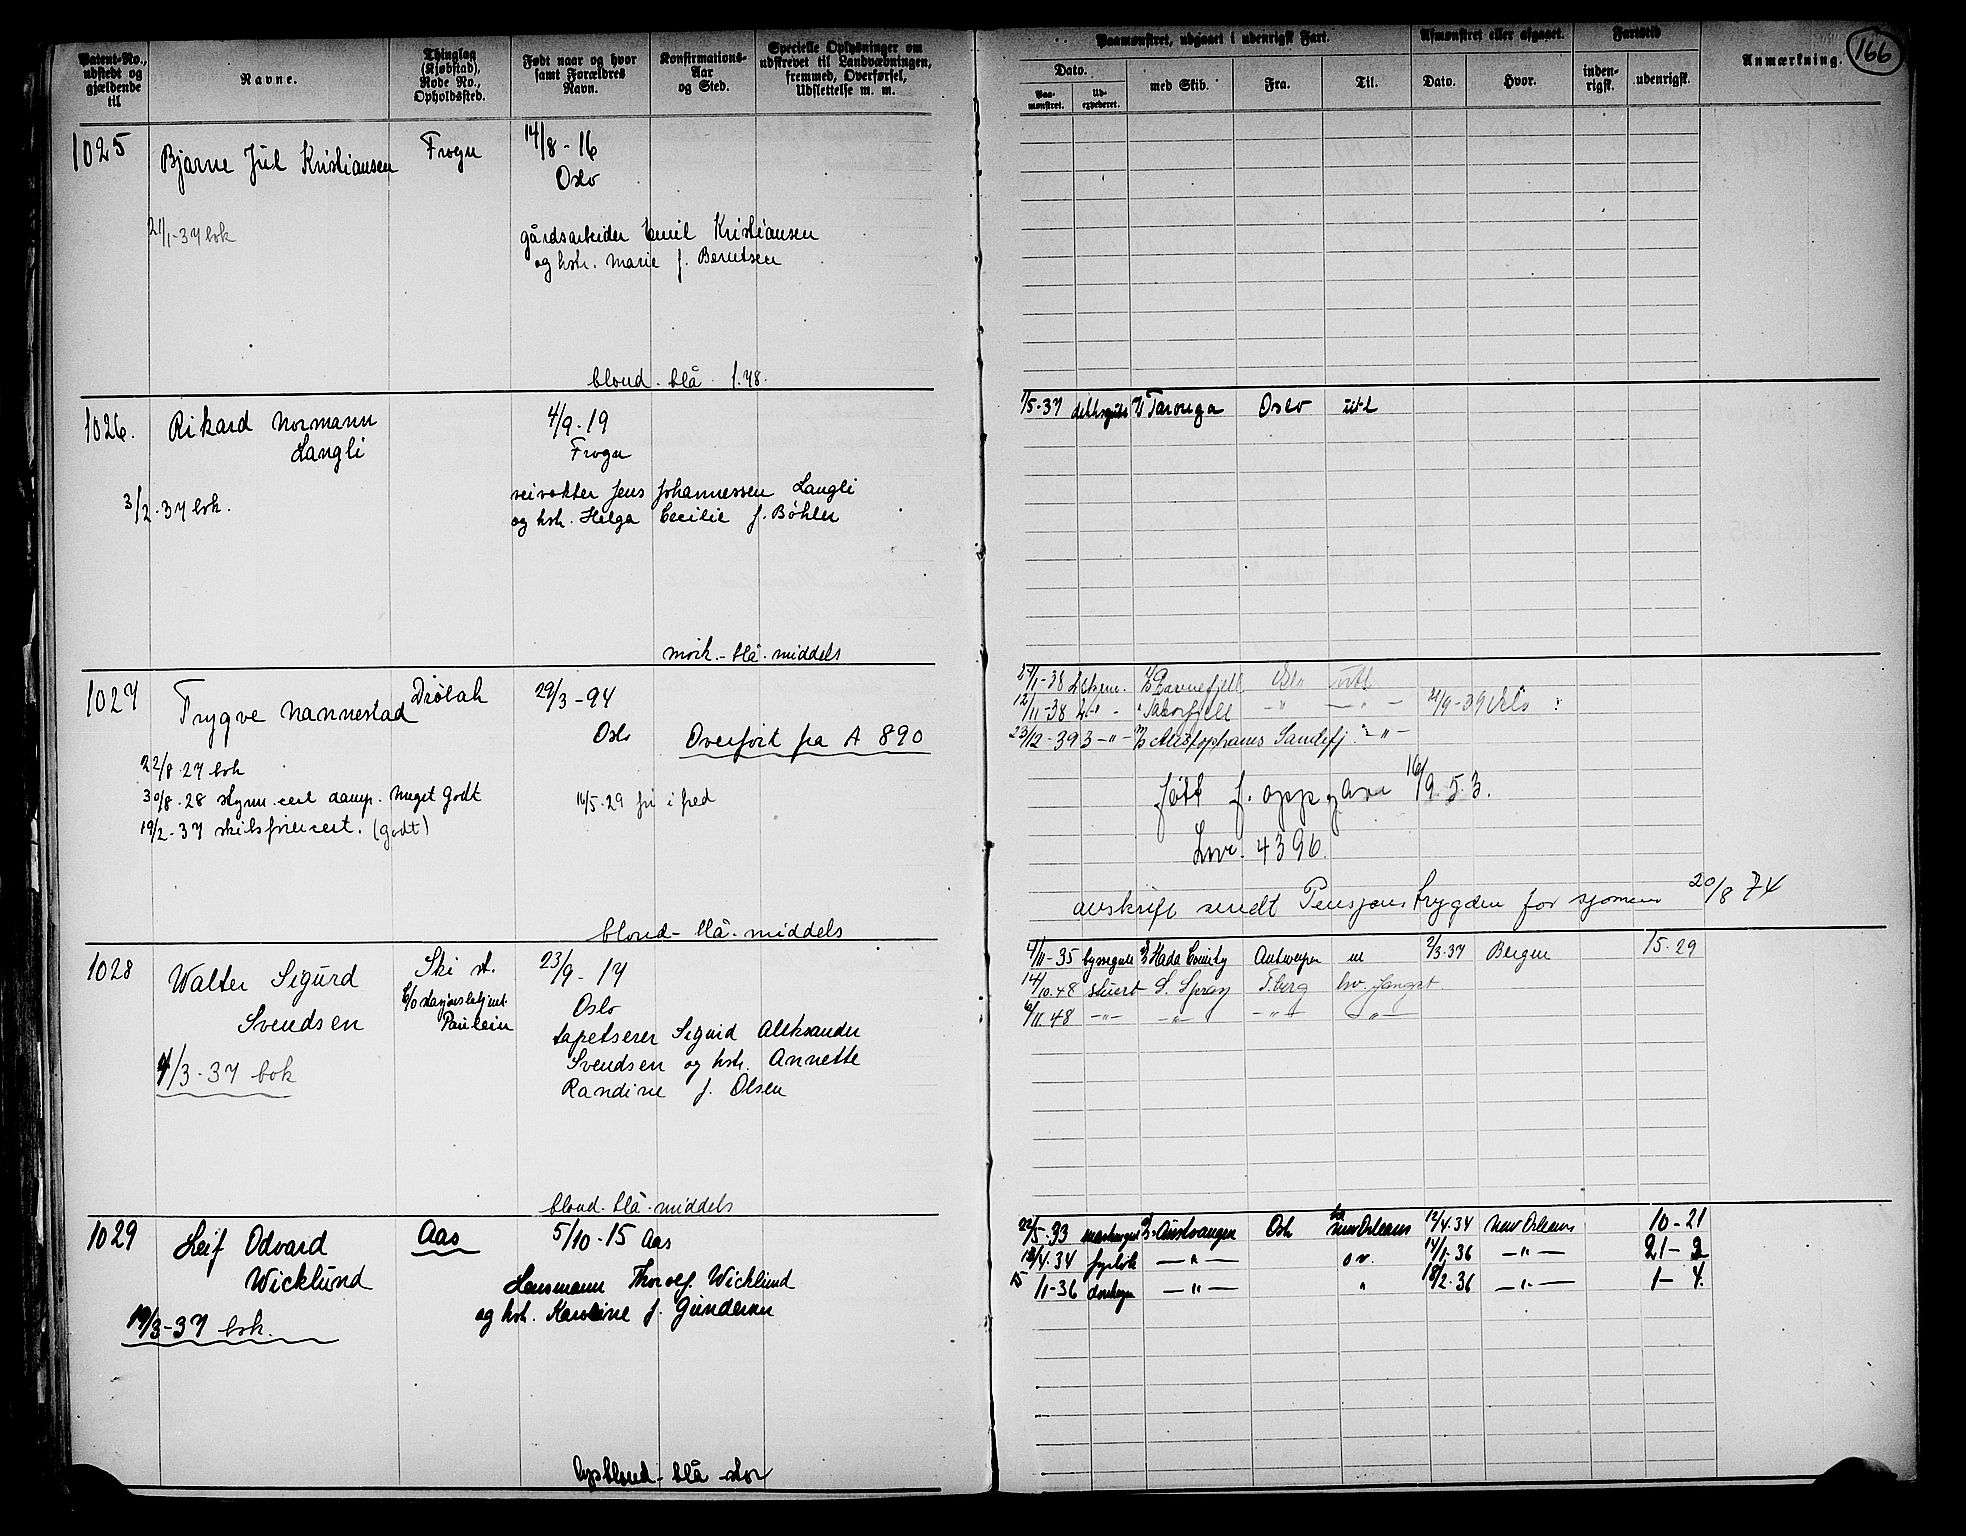 166
Patent-No., udstedt og gjældende til
Navne.
Thinglag (Kjøbstad), Rode No., Opholdssted.
Født naar og hvor samt Forældres Navn.
Konfirmations-Aar og Sted.
Specielle Oplysninger om udskrevet til Landværnningen, fremmed, Overførsel, Udslettelse m. m.
Paamønstret, udgaaet i udenrigsk Fart.
Afmønstret eller afgaaet.
Fartstid
Anmærkning.
Dato.
Paa-mønstret.
Ud-expederet.
med Skib.
Fra.
Til.
Dato.
Hvor.
inden-rigsk.
udenrigsk.
1025 Bjarne Jul Kristiansen Frogn 14/8-16
Oslo
21/1-37 bok
gårdsarbeider Emil Kristiansen
og hstr. Marie f. Berntsen
blond. blå. 1.78.
1026. Rikard Normann 4/9.19
Langli Frogn
3/2-37 bok.
veivokter Jens Johannessen Langli
og hstr. Helga Cecilie f. Bøhler
mørk.-blå.middels
1/5-37 Taronga Oslo utl
1027 Trygve Nannestad Drøbak 29/3-94
Oslo Overført fra A 890
22/8.27 bok
30/8.28 styrm.cert damp. Meget Godt
19/2-37 skilsførercert. (godt)
16/5.29 fri i fred
blond-blå.middels
/1-38 Oslo utl
12/11-38 Taborfjell -"- -"- /9-39 Oslo
23/12-39 3 -"- Aristophanes Sandefj. -"-
født f. oppgave 16/9.53.
Lnr. 4396.
avskrift sendt Pensjons trygden for sjømenn 20/8 74
1028 Walter Sigurd Ski st. 23/9-17
Svendsen Oslo
c/o stasjonsbetjent
Paulsin
4/3-37 bok
tapetserer Sigurd Aleksander
Svendsen og hstr. Annette
Randine f. Olsen
blond-blå.middels
4/11-35 byssegutt Hada County Antwerpen ut 2/3-37 Bergen 15-29
14/10.48 stuert S. Spray T.berg hv.fangst
6/11.48 -"- -"- -"- -"-
1029 Leif Odvard Aas 5/10-15 Aas
Wicklund
19/3-37 bok.
Lensmann Thorolf Wicklund
og hstr. Karoline f. Gundersen
lysblond-blå-stor
22/5-33 Austvangen Oslo New Orleans 12/4.34 New Orleans 10-21
13/4.34 fyrbøt -"- o v. 14/1-36 -"- 21-2
15/1-36 donkeym -"- " 18/2.36 -"- 1-4.